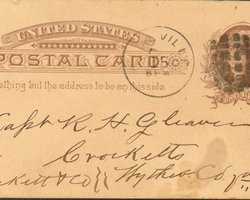 UNITED STATES
POSTAL CARD
nothing but the address to be on this side.
VILL
5
Capt R. H. Gleaves
Crocketts
Wythe Co